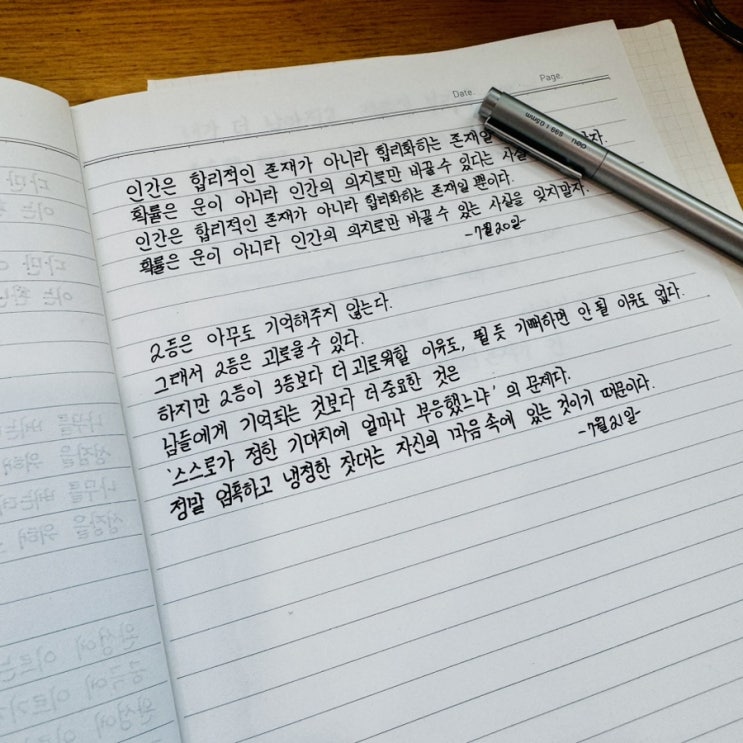 Date.
Page.
인간은 합리적인 존재가 아니라 합리화하는 존재일
확률은 운이 아니라 인간의 의지로만 바꿀 수 있다는 사실
인간은 합리적인 존재가 아니라 합리화하는 존재일 뿐이다.
확률은 운이 아니라 인간의 의지로만 바꿀 수 있는 사실을 잊지말자.
-7월20일-
2등은 아무도 기억해주지 않는다.
그래서 2등은 괴로울 수 있다.
하지만 2등이 3등보다 더 괴로워할 이유도, 뛸 듯 기뻐하면 안 될 이유도 없다.
남들에게 기억되는 것보다 더 중요한 것은
'스스로가 정한 기대치에 얼마나 부응했느냐' 의 문제다.
정말 엄혹하고 냉정한 잣대는 자신의 마음 속에 있는 것이기 때문이다.
-7월21일-